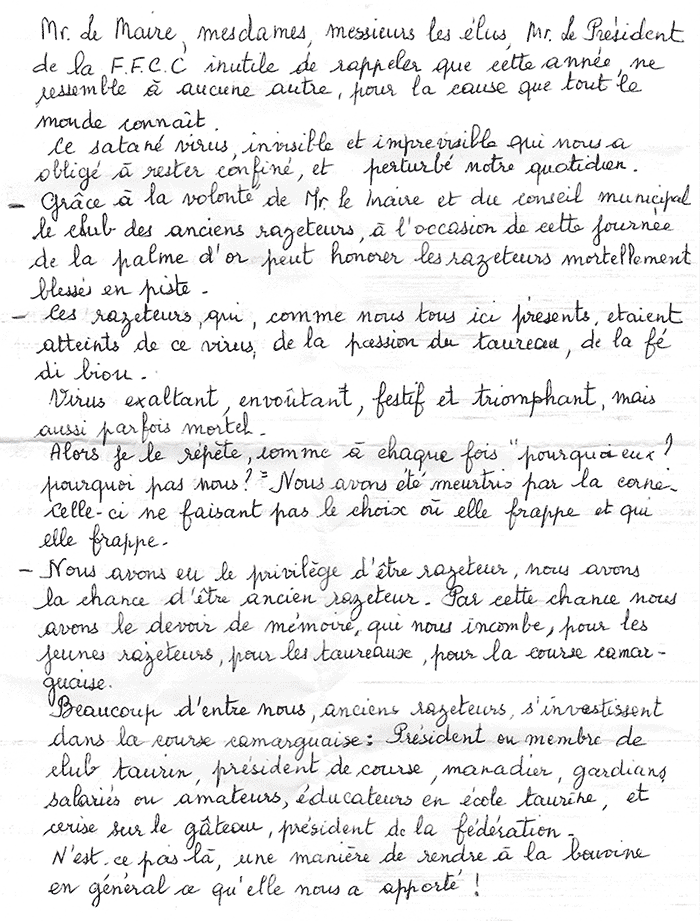 Mr. le Maire, mesdames, messieurs les élus, Mr. le Président
de la F.F.C.C inutile de rappeler que cette année, ne
ressemble à aucune autre, pour la cause que tout le
monde connaît.
Ce satané virus, invisible et imprevisible qui nous a
obligé à rester confiné, et perturbé notre quotidien.
- Grâce à la volonté de Mr. le Maire et du conseil municipal
le club des anciens razeteurs, à l'occasion de cette journée
de la palme d'or peut honorer les razeteurs mortellement
blessés en piste.
- Ces razeteurs, qui, comme nous tous ici présents, etaient
atteints de ce virus, de la passion du taureau, de la fé
di biou.
Virus exaltant, envoûtant, festif et triomphant, mais
aussi parfois mortel.
Alors je le répète, comme à chaque fois "pourquoi eux?
pourquoi pas nous?" Nous avons été meurtris par la corne.
Celle-ci ne faisant pas le choix où elle frappe et qui
elle frappe.
- Nous avons eu le privilège d'être razeteur, nous avons
la chance d'être ancien razeteur. Par cette chance nous
avons le devoir de mémoire, qui nous incombe, pour les
jeunes razeteurs, pour les taureaux, pour la course camar-
guaise.
Beaucoup d'entre nous, anciens razeteurs, s'investissent
dans la course camarguaise: Président ou membre de
club taurin, président de course, manadier, gardians
salariés ou amateurs, éducateurs en école taurine, et
cerise sur le gâteau, président de la fédération.
N'est-ce pas là, une manière de rendre à la bouvine
en général ce qu'elle nous a apporté!